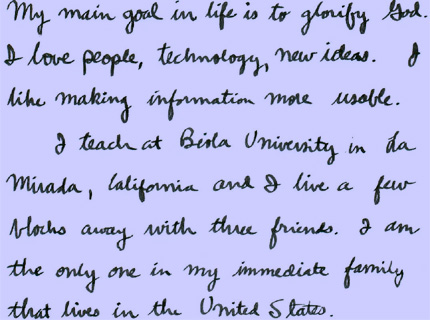 My main goal in life is to glorify God.
I love people, technology, new ideas. I
like making information more usable.
I teach at Biola University in La
Mirada, California and I live a few
blocks away with three friends. I am
the only one in my immediate family
that lives in the United States.